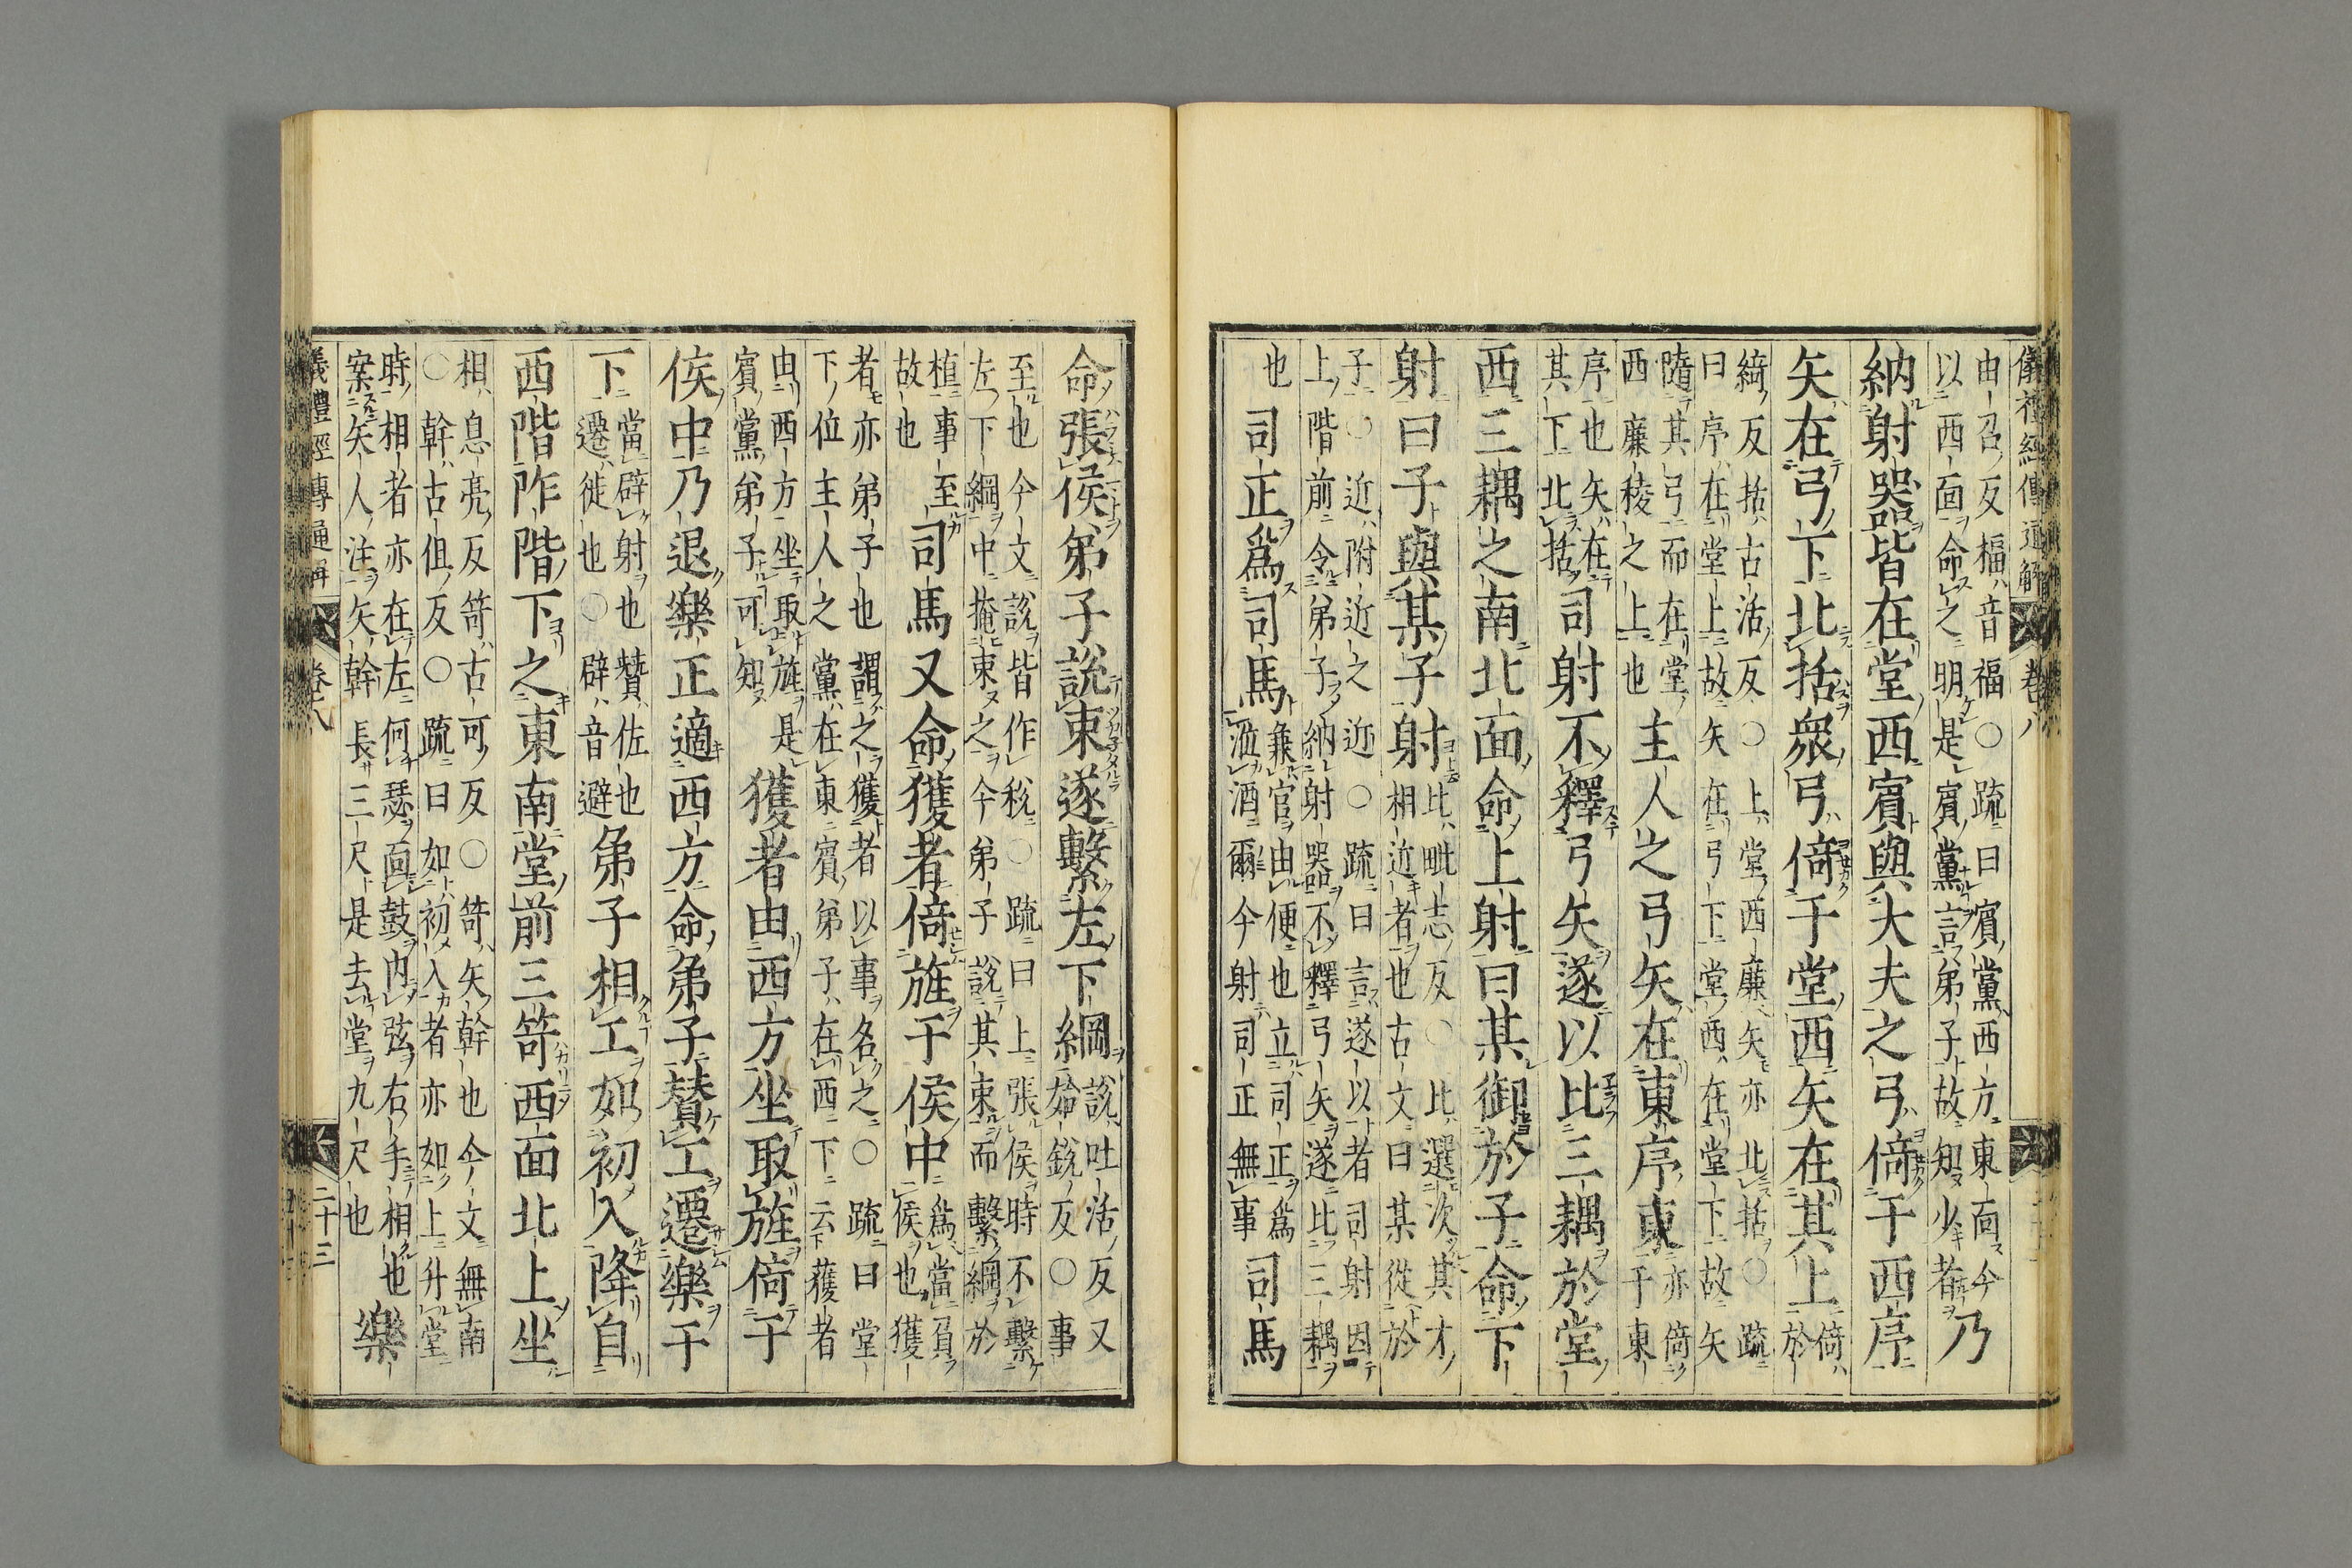 儀禮經傳通解 卷八
由召反楅音福○疏曰賓黨西方東面今
以西面命之明是賓黨言弟子故知少者
乃
納射器皆在堂西賓與大夫之弓倚于西序
矢在弓下北括衆弓倚于堂西矢在其上
倚
於
綺反括古活反○上堂西廉矢亦北括○疏
曰序在堂上故矢在弓下堂西在堂下故矢
隨其弓而在堂
西廉稜之上也
主人之弓矢在東序東
亦倚
于東
序也矢在
其下北括
司射不釋弓矢遂以比三耦於堂
西三耦之南北面命上射曰某御於子命下
射曰子與某子射
比毗志反○比選次其才
相近者也古文曰某從於
子○近附近之近○疏曰言遂以者司射因
上階前令弟子納射器不釋弓矢遂比三耦
也
司正爲司馬
兼官由便也立司正爲
涖酒爾今射司正無事
司馬
命張侯弟子說束遂繫左下綱
說吐活反又
始銳反○事
至也今文說皆作稅○疏曰上張侯時不繫
左下綱中掩束之今弟子說其束而繫綱於
植事至
故也
司馬又命獲者倚旌于侯中
爲當負
侯也獲
者亦弟子也謂之獲者以事名之○疏曰堂
下位主人之黨在東賓弟子在西下云獲者
由西方坐取旌是
賓黨弟子可知
獲者由西方坐取旌倚于
侯中乃退樂正適西方命弟子贊工遷樂于
下
當辟射也贊佐也
遷徙也○辟音避
弟子相工如初入降自
西階阼階下之東南堂前三笴西面北上坐
相息亮反笴古可反○笴矢幹也今文無南
○幹古但反○疏曰如初入者亦如上升堂
時相者亦在左何瑟面鼓內弦右手相也
案矢人注矢幹長三尺是去堂九尺也
樂
儀禮經傳通解 卷八 二十三